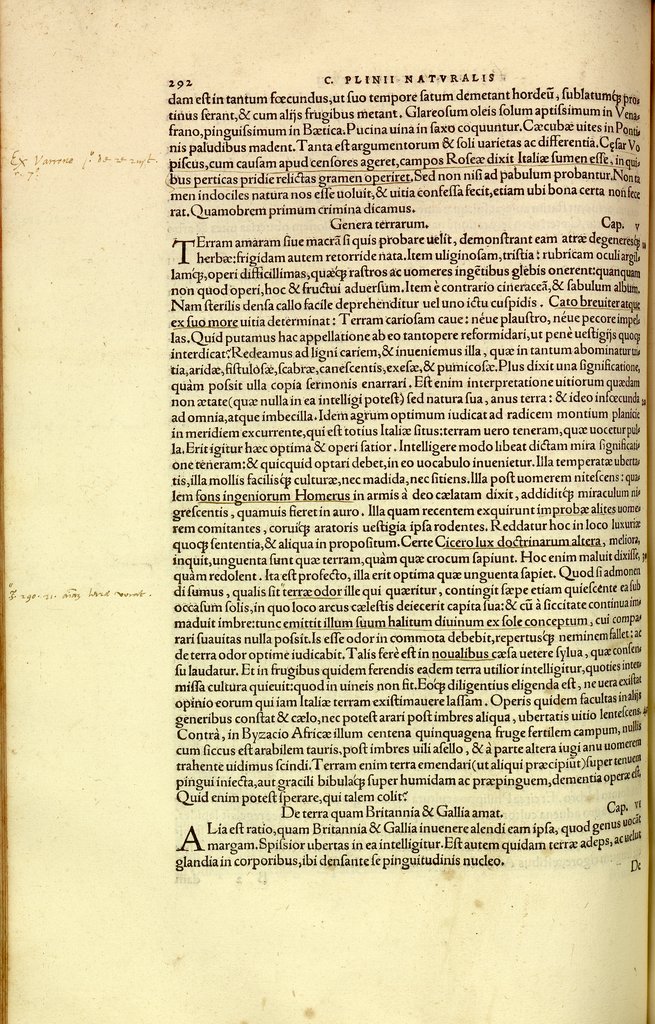 292
C. PLINII NATVRALIS
dam est in tantum fœcundus, ut suo tempore satum demetant hordeū, sublatumq́; pro-
tinus serant, & cum alijs frugibus metant. Glareosum oleis solum aptissimum in Vena-
frano, pinguissimum in Bætica. Pucina uina in saxo coquuntur. Cæcubæ uites in Ponti-
nis paludibus madent. Tanta est argumentorum & soli uarietas ac differentia. Cęsar Vo
piscus, cum causam apud censores ageret, campos Roseæ dixit Italiæ sumen esse, in qui-
bus perticas pridie relictas gramen operiret. Sed non nisi ad pabulum probantur. Non ta
men indociles natura nos esse uoluit, & uitia confessa fecit, etiam ubi bona certa non fece
rat. Quamobrem primum crimina dicamus.
Ex Varrone
Genera terrarum. Cap. v
TErram amaram siue macrā si quis probare uelit, demonstrant eam atræ degeneresq́;
herbæ: frigidam autem retorride nata. Item uliginosam, tristia: rubricam oculi argil-
lamq́;, operi difficillimas, quæq́; rastros ac uomeres ingētibus glebis onerent: quanquam
non quod operi, hoc & fructui aduersum. Item è contrario cineraceā, & sabulum album.
Nam sterilis densa callo facile deprehenditur uel uno ictu cuspidis. Cato breuiter atque
ex suo more uitia determinat: Terram cariosam caue: néue plaustro, néue pecore impel-
las. Quid putamus hac appellatione ab eo tantopere reformidari, ut penè uestigijs quoq;
interdicat? Redeamus ad ligni cariem, & inueniemus illa, quæ in tantum abominatur ui-
tia, aridæ, fistulosæ, scabræ, canescentis, exesæ, & pumicosæ. Plus dixit una significatione,
quàm possit ulla copia sermonis enarrari. Est enim interpretatione uitiorum quædam
non ætate (quæ nulla in ea intelligi potest) sed natura sua, anus terra: & ideo infœcunda
ad omnia, atque imbecilla. Idem agrum optimum iudicat ad radicem montium planicie
in meridiem excurrente, qui est totius Italiæ situs: terram uero teneram, quæ uocetur pul-
la. Erit igitur hæc optima & operi & satior. Intelligere modo libeat dictam mira significati-
one teneram: & quicquid optari debet, in eo uocabulo inuenietur. Illa temperatæ uberta-
tis, illa mollis facilisq́; culturæ, nec madida, nec sitiens. Illa post uomerem nitescens: qua-
lem fons ingeniorum Homerus in armis à deo cælatam dixit, addiditq́; miraculum ni-
grescentis, quamuis fieret in auro. Illa quam recentem exquirunt improbæ alites uome-
rem comitantes, coruiq́; aratoris uestigia ipsa rodentes. Reddatur hoc in loco luxuriæ
quoq́; sententia, & aliqua in propositum. Certe Cicero lux doctrinarum altera, meliora,
inquit, unguenta sunt quæ terram, quàm quæ crocum sapiunt. Hoc enim maluit dixisse,
quàm redolent. Ita est profecto, illa erit optima quæ unguenta sapiet. Quod si admonen
di sumus, qualis sit terræ odor ille qui quæritur, contingit sæpe etiam quiescente ea sub
occasum solis, in quo loco arcus cælestis deiecerit capita sua: & cū à siccitate continua im
maduit imbre: tunc emittit illum suum halitum diuinum ex sole conceptum, cui compa-
rari suauitas nulla possit. Is esse odor in commota debebit, repertusq́; neminem fallet: ac
de terra odor optime iudicabit. Talis ferè est in noualibus cæsa uetere sylua, quæ consen-
su laudatur. Et in frugibus quidem ferendis eadem terra utilior intelligitur, quoties inter-
missa cultura quieuit: quod in uineis non fit. Eoq́; diligentius eligenda est, ne uera existat
opinio eorum qui iam Italiæ terram existimauere lassam. Operis quidem facultas in alijs
generibus constat & cælo, nec potest arari post imbres aliqua, ubertatis uitio lentescens.
Contrà, in Byzacio Africæ illum centena quinquagena fruge fertilem campum, nullis
cum siccus est arabilem tauris, post imbres uili asello, & à parte altera iugi anu uomerem
trahente uidimus scindi. Terram enim terra emendari (ut aliqui præcipiūt) super tenuem
pingui iniecta, aut gracili bibulaq́; super humidam ac præpinguem, dementia operæ est.
Quid enim potest sperare, qui talem colit?
De terra quam Britannia & Gallia amat. Cap. vi
ALia est ratio, quam Britannia & Gallia inuenere alendi eam ipsa, quod genus uocāt
margam. Spissior ubertas in ea intelligitur. Est autem quidam terræ adeps, ac uelut
glandia in corporibus, ibi densante se pinguitudinis nucleo.
De